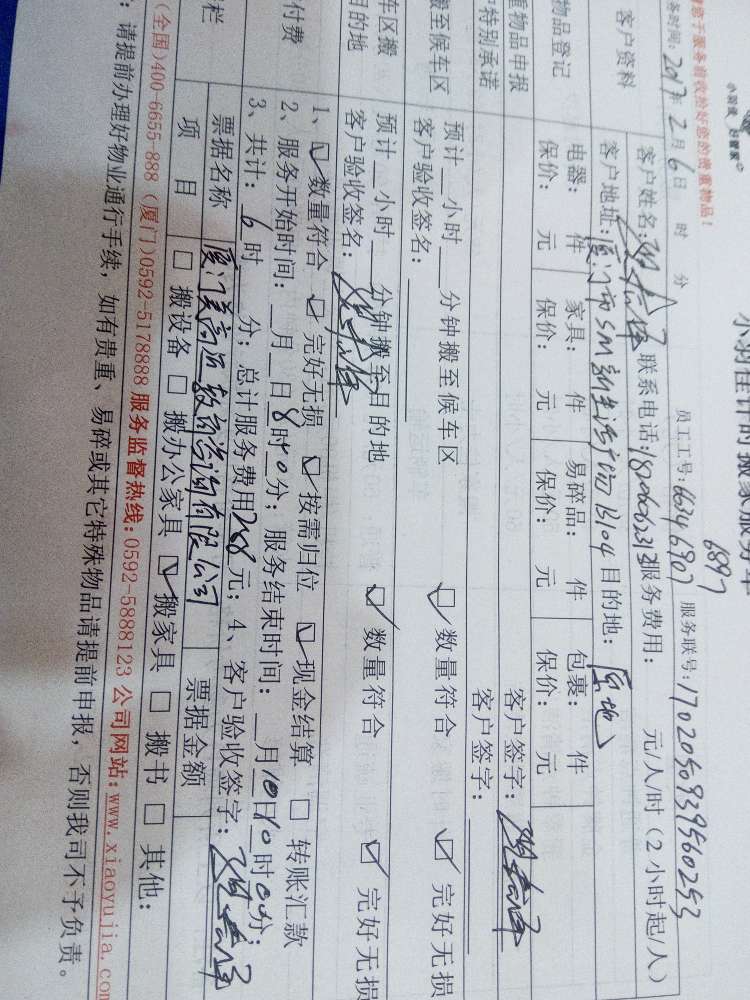 小羽佳 好管家
小羽佳计时搬家服务单
请您于服务前收拾好您的贵重物品!
6897
务时间: 2017年2月6日 时 分 员工工号: 6634 6907 服务联号: 1702050939560253
客户资料 客户姓名: 联系电话: 服务费用: 元/人/时 (2小时起/人)
客户地址: 厦门市SM新生活广场B104 目的地: 原地
物品登记 电器: 件 家具: 件 易碎品: 件 包裹: 件
保价: 元 保价: 元 保价: 元 保价: 元
重物品申报 客户签字:
特别承诺 客户签字:
搬至候车区 预计 小时 分钟搬至候车区 数量符合 完好无损
客户验收签名:
车区搬 目的地 预计 小时 分钟搬至目的地 数量符合 完好无损
客户验收签名:
付费 1、 数量符合 完好无损 按需归位 现金结算 转账汇款
2、服务开始时间: 月 日8时40分; 服务结束时间: 月 日10时00分;
3、共计: 6时 分; 总计服务费用288元; 4、客户验收签字:
栏 票据名称 厦门 教育咨询有限公司 票据金额
项目 搬设备 搬办公家具 搬家具 搬书 其他:
(全国)400-6655-888 (厦门)0592-5178888 服务监督热线:0592-5888123 公司网站:www.xiaoyujia.com
: 请提前办理好物业通行手续, 如有贵重、易碎或其它特殊物品请提前申报, 否则我司不予负责。